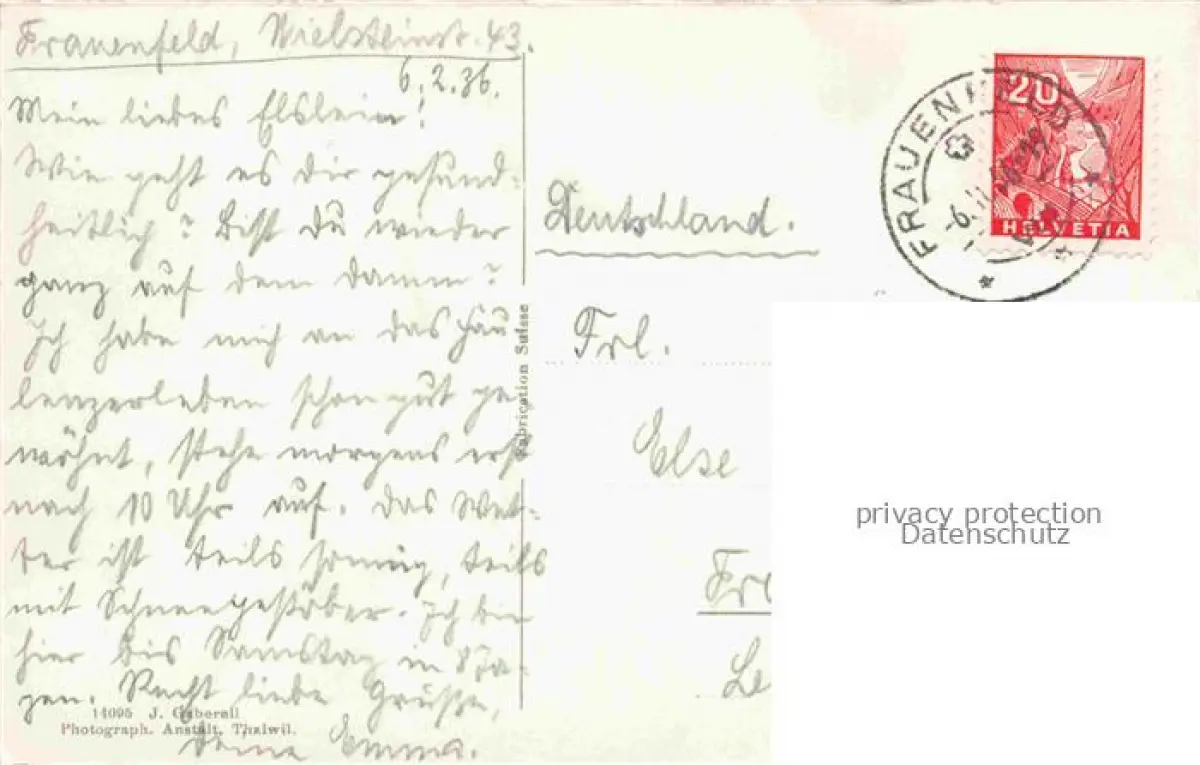 Frauenfeld, Wielsteinstr. 43.
6.2.36.
Mein liebes Elslein!
Wie geht es Dir gesund-
heitlich? Bist Du wieder
ganz auf dem Damm?
Ich habe mich an das Fau
lenzerleben schon gut ge-
wöhnt, stehe morgens erst
nach 10 Uhr auf. Das Wet-
ter ist teils sonnig, teils
mit Schneegestöber. Ich bin
hier bis Samstag in 8 Ta-
gen. Recht liebe Grüsse,
Deine Emma.
14095 J. Gaberell
Photograph. Anstalt, Thalwil.
Fabrication Suisse
FRAUENFELD
20
HELVETIA
Deutschland.
Frl.
Else
privacy protection
Datenschutz
Fr
Le